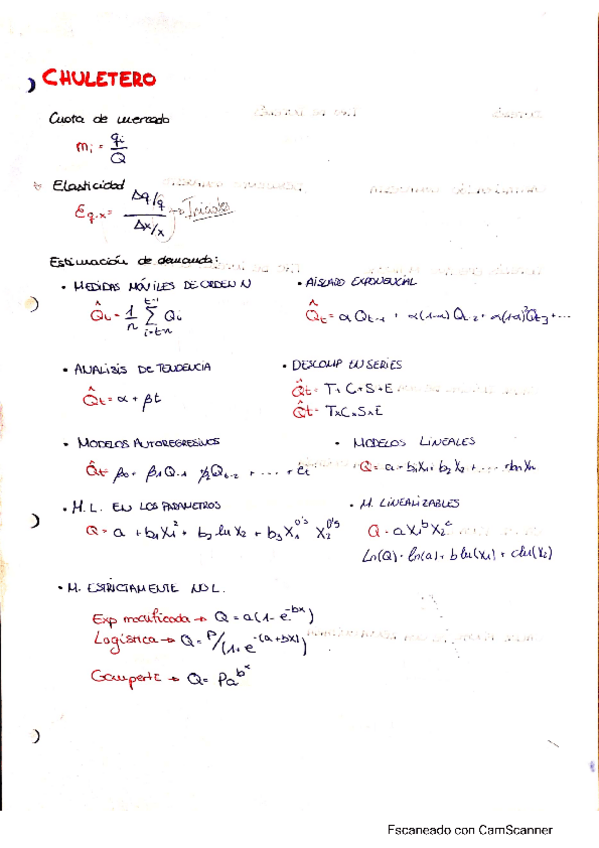 CHULETERO
Cuota de mercado
mi = qi/Q
Elasticidad
Eq,x = Δq/q / Δx/x → Iniciales
Estimación de demanda:
• MEDIDAS MÓVILES DE ORDEN N
Q̂t = 1/n Σ Qi
t-1
i=t-n
• AISLADO EXPONENCIAL
Q̂t = α Qt-1 + α(1-α) Qt-2 + α(1-α)²Qt-3 + ...
• ANALISIS DE TENDENCIA
Q̂t = α + βt
• DESCOMP EN SERIES
Q̂t = T+C+S+E
Q̂t = TxCxSxE
• MODELOS AUTOREGRESIVOS
Q̂t = β0 + β1Qt-1 + β2Qt-2 + .... + et
• MODELOS LINEALES
Q = a + b1X1 + b2X2 + .... + bnXn
• M.L. EN LOS PARAMETROS
Q = a + b1X1² + b2 ln X2 + b3 X1^0'5 X2^0'5
• M. LINEALIZABLES
Q = aX1^b X2^c
Ln(Q) = ln(a) + b ln(X1) + c ln(X2)
• M. ESTRICTAMENTE NO L.
Exp modificada → Q = a(1 - e^-bx)
Logistica → Q = P/(1 + e^-(a+bx))
Gompertz → Q = Pa^b^x
Escaneado con CamScanner